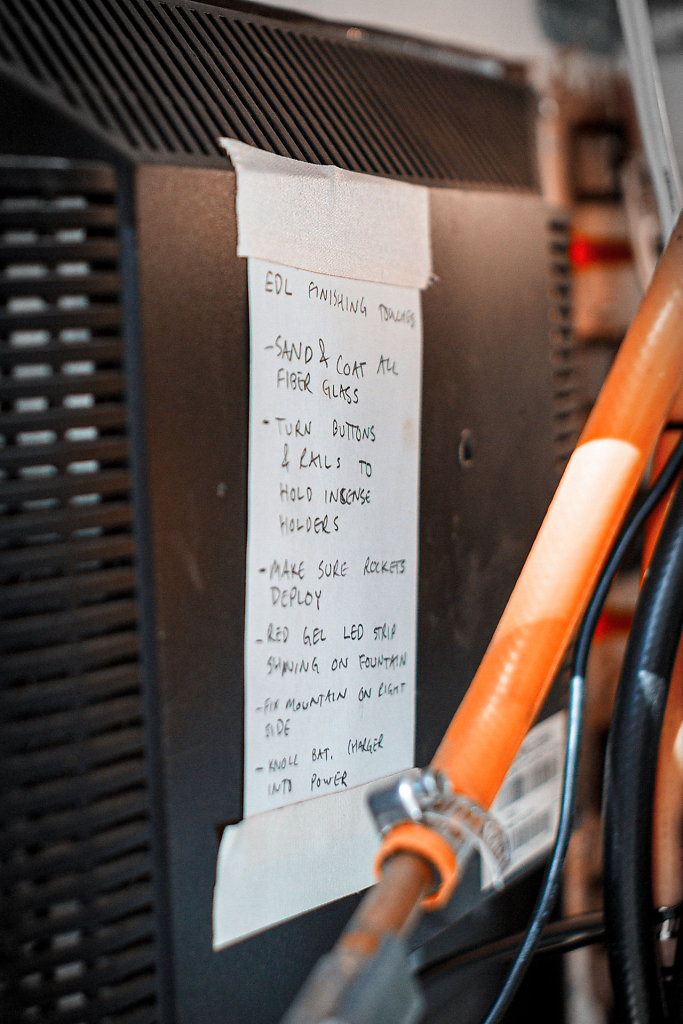 EDL FINISHING TOUCHES
- SAND & COAT ALL
FIBER GLASS
- TURN BUTTONS
& RAILS TO
HOLD INSENSE
HOLDERS
- MAKE SURE ROCKETS
DEPLOY
- RED GEL LED STRIP
SHINING ON FOUNTAIN
- FIX MOUNTAIN ON RIGHT
SIDE
- KNOLL BAT. CHARGER
INTO POWER